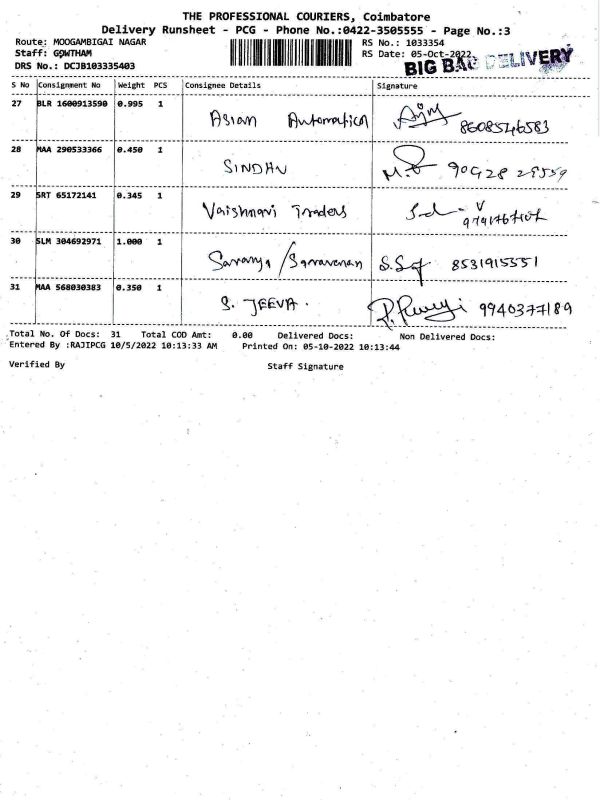 THE PROFESSIONAL COURIERS, Coimbatore
Delivery Runsheet - PCG - Phone No.:0422-3505555 - Page No.:3
Route: MOOGAMBIGAI NAGAR RS No.: 1033354
Staff: GOWTHAM RS Date: 05-Oct-2022
DRS No.: DCJB103335403 BIG BAG DELIVERY
S No Consignment No Weight PCS Consignee Details Signature
27 BLR 1600913590 0.995 1 Asian Automation 8608546583
28 MAA 290533366 0.450 1 SINDHU
29 SRT 65172141 0.345 1 Vaishnavi Traders
30 SLM 304692971 1.000 1 Saranya / Saravanan 8531915551
31 MAA 568030383 0.350 1 S. JEEVA. 9940377189
Total No. Of Docs: 31 Total COD Amt: 0.00 Delivered Docs: Non Delivered Docs:
Entered By :RAJIPCG 10/5/2022 10:13:33 AM Printed On: 05-10-2022 10:13:44
Verified By Staff Signature